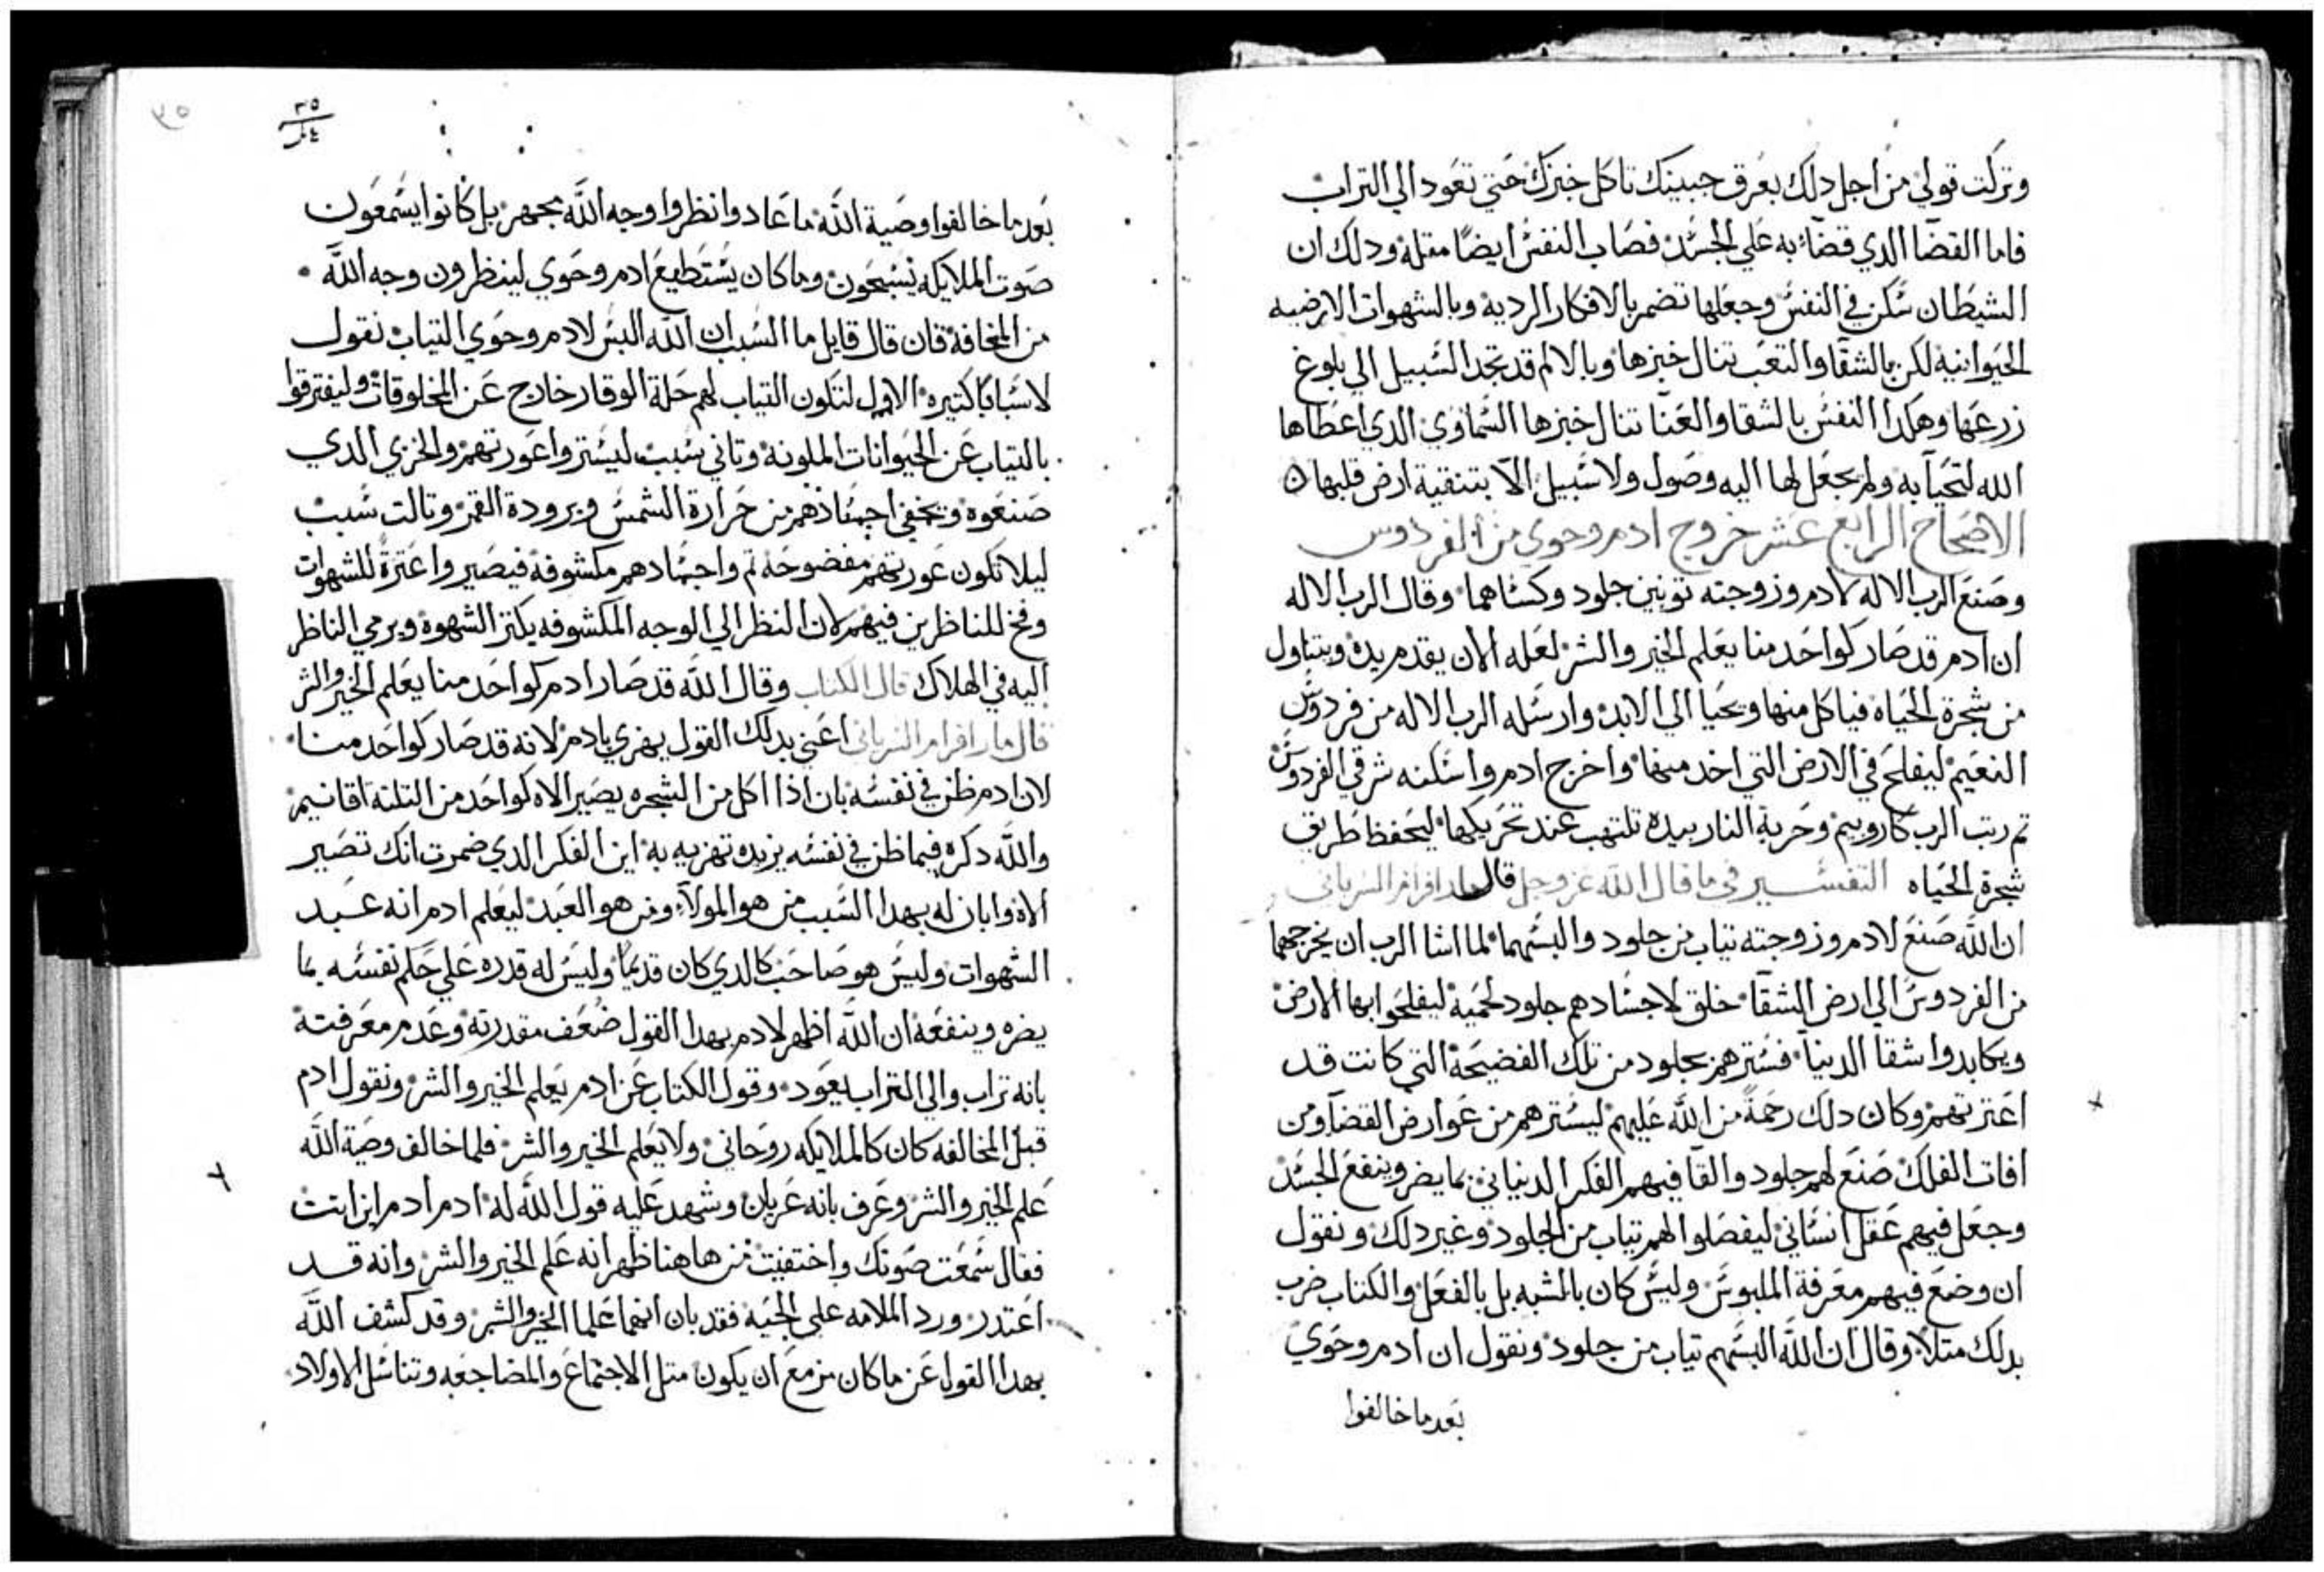 وتركت قولي من اجل دلك بعرق جبينك تاكل خبزك حتي تعود الي التراب
فاما القضا الدي قضاء به علي الجسد فصاب النفس ايضًا مقله ودلك ان
الشيطان سكن في النفس وجعلها تضمر بالافكار الرديه وبالشهوات الارضيه
الحيوانيه لكن بالشقا والتعب تنال خبزها وبالالم قد تجد السبيل الي بلوغ
زرعها وهكدا النفس بالشقا والعنا تنال خبزها السماوي الدي اعطاها
الله لتحيا به ولم يجعل لها اليه وصول ولا سبيل الا بتنقية ارض قلبها
الاصحاح الرابع عشر خروج ادم وحوي من الفردوس
وصنع الرب الاله لادم وزوجته توبين جلود وكساهما وقال الرب الاله
ان ادم قد صار كواحد منا يعلم الخير والشر لعله الان يقدم يده ويتناول
من شجرة الحياه فياكل منها ويحيا الي الابد وارسله الرب الاله من فردوس
النعيم ليفلح في الارض التي اخد منها واخرج ادم واسكنه شرقي الفردوس
تم رتب الرب كاروبيم وحربة النار بيده تلتهب عند تحريكها ليحفظ طريق
شجرة الحياه التفسير في ما قال الله عز وجل قال مار افرام السرياني
ان الله صنع لادم وزوجته تياب من جلود والبسهما لما اشا الرب ان يخرجهما
من الفردوس الي ارض الشقا خلق لاجسادهم جلود لحميه ليفلحوا بها الارض
ويكابدوا شقا الدنيا فسترهم بجلود من تلك الفضيحة التي كانت قد
اعترتهم وكان دلك رحمةً من الله عليهم ليسترهم من عوارض القضا ومن
افات الفلك صنع لهم جلود والقا فيهم الفكر الدنياني بما يضر وينفع الجسد
وجعل فيهم عقل انساني ليفصلوا لهم تياب من الجلود وغير دلك ونقول
ان وضع فيهم معرفة الملبوس وليس كان بالشبه بل بالفعل والكتاب ضرب
بدلك متلاً وقال ان الله البسهم تياب من جلود ونقول ان ادم وحوي
بعد ما خالفوا
٣٥
بعد ما خالفوا وصية الله ما عادوا نظروا وجه الله بجهر بل كانوا يسمعون
صوت الملايكه يسبحون وما كان يستطيع ادم وحوي لينظرون وجه الله
من المخافة فان قال قايل ما السبب ان الله البس لادم وحوي التياب نقول
لاسبابًا كتيره الاول لتكون التياب لهم حلة الوقار خارج عن المخلوقات وليفترقوا
بالتياب عن الحيوانات الملونه وتاني سبب ليستروا عورتهم والخزي الدي
صنعوه ويخفي اجسادهم من حرارة الشمس وبرودة القمر وتالت سبب
ليلا تكون عورتهم مفضوحه تم واجسادهم مكشوفة فيصيروا عترةً للشهوات
وفخ للناظرين فيهم لان النظر الي الوجه المكشوفه يكتر الشهوة ويرمي الناظر
اليه في الهلاك قال الكتاب وقال الله قد صار ادم كواحد منا يعلم الخير والشر
قال مار افرام السرياني اعني بدلك القول يهزي بادم لانه قد صار كواحد منا
لان ادم ظن في نفسه بان اذا اكل من الشجره يصير الاه كواحد من التلته اقانيم
والله دكره فيما ظن في نفسه يزيده تهزيه به اين الفكر الدي ضمرت انك تصير
الاه وابان له بهدا السبب من هو المولا ومن هو العبد ليعلم ادم انه عبد
الشهوات وليس هو صاحب كالدي كان قديمًا وليس له قدره علي حكم نفسه بما
يضره وينفعه ان الله اظهر لادم بهدا القول ضعف مقدرته وعدم معرفته
بانه تراب والي التراب يعود وقول الكتاب عن ادم يعلم الخير والشر ونقول ادم
قبل المخالفه كان كالملايكه روحاني ولا يعلم الخير والشر فلما خالف وصية الله
علم الخير والشر وعرف بانه عريان وشهد عليه قول الله له ادم ادم اين انت
فقال سمعت صوتك واختفيت من هاهنا ظهر انه علم الخير والشر وانه قد
اعتدر ورد الملامه علي الحيه فقد بان انهما علما الخير والشر وقد كشف الله
بهدا القول عن ما كان مزمع ان يكون متل الاجتماع والمضاجعه وتناسل الاولاد